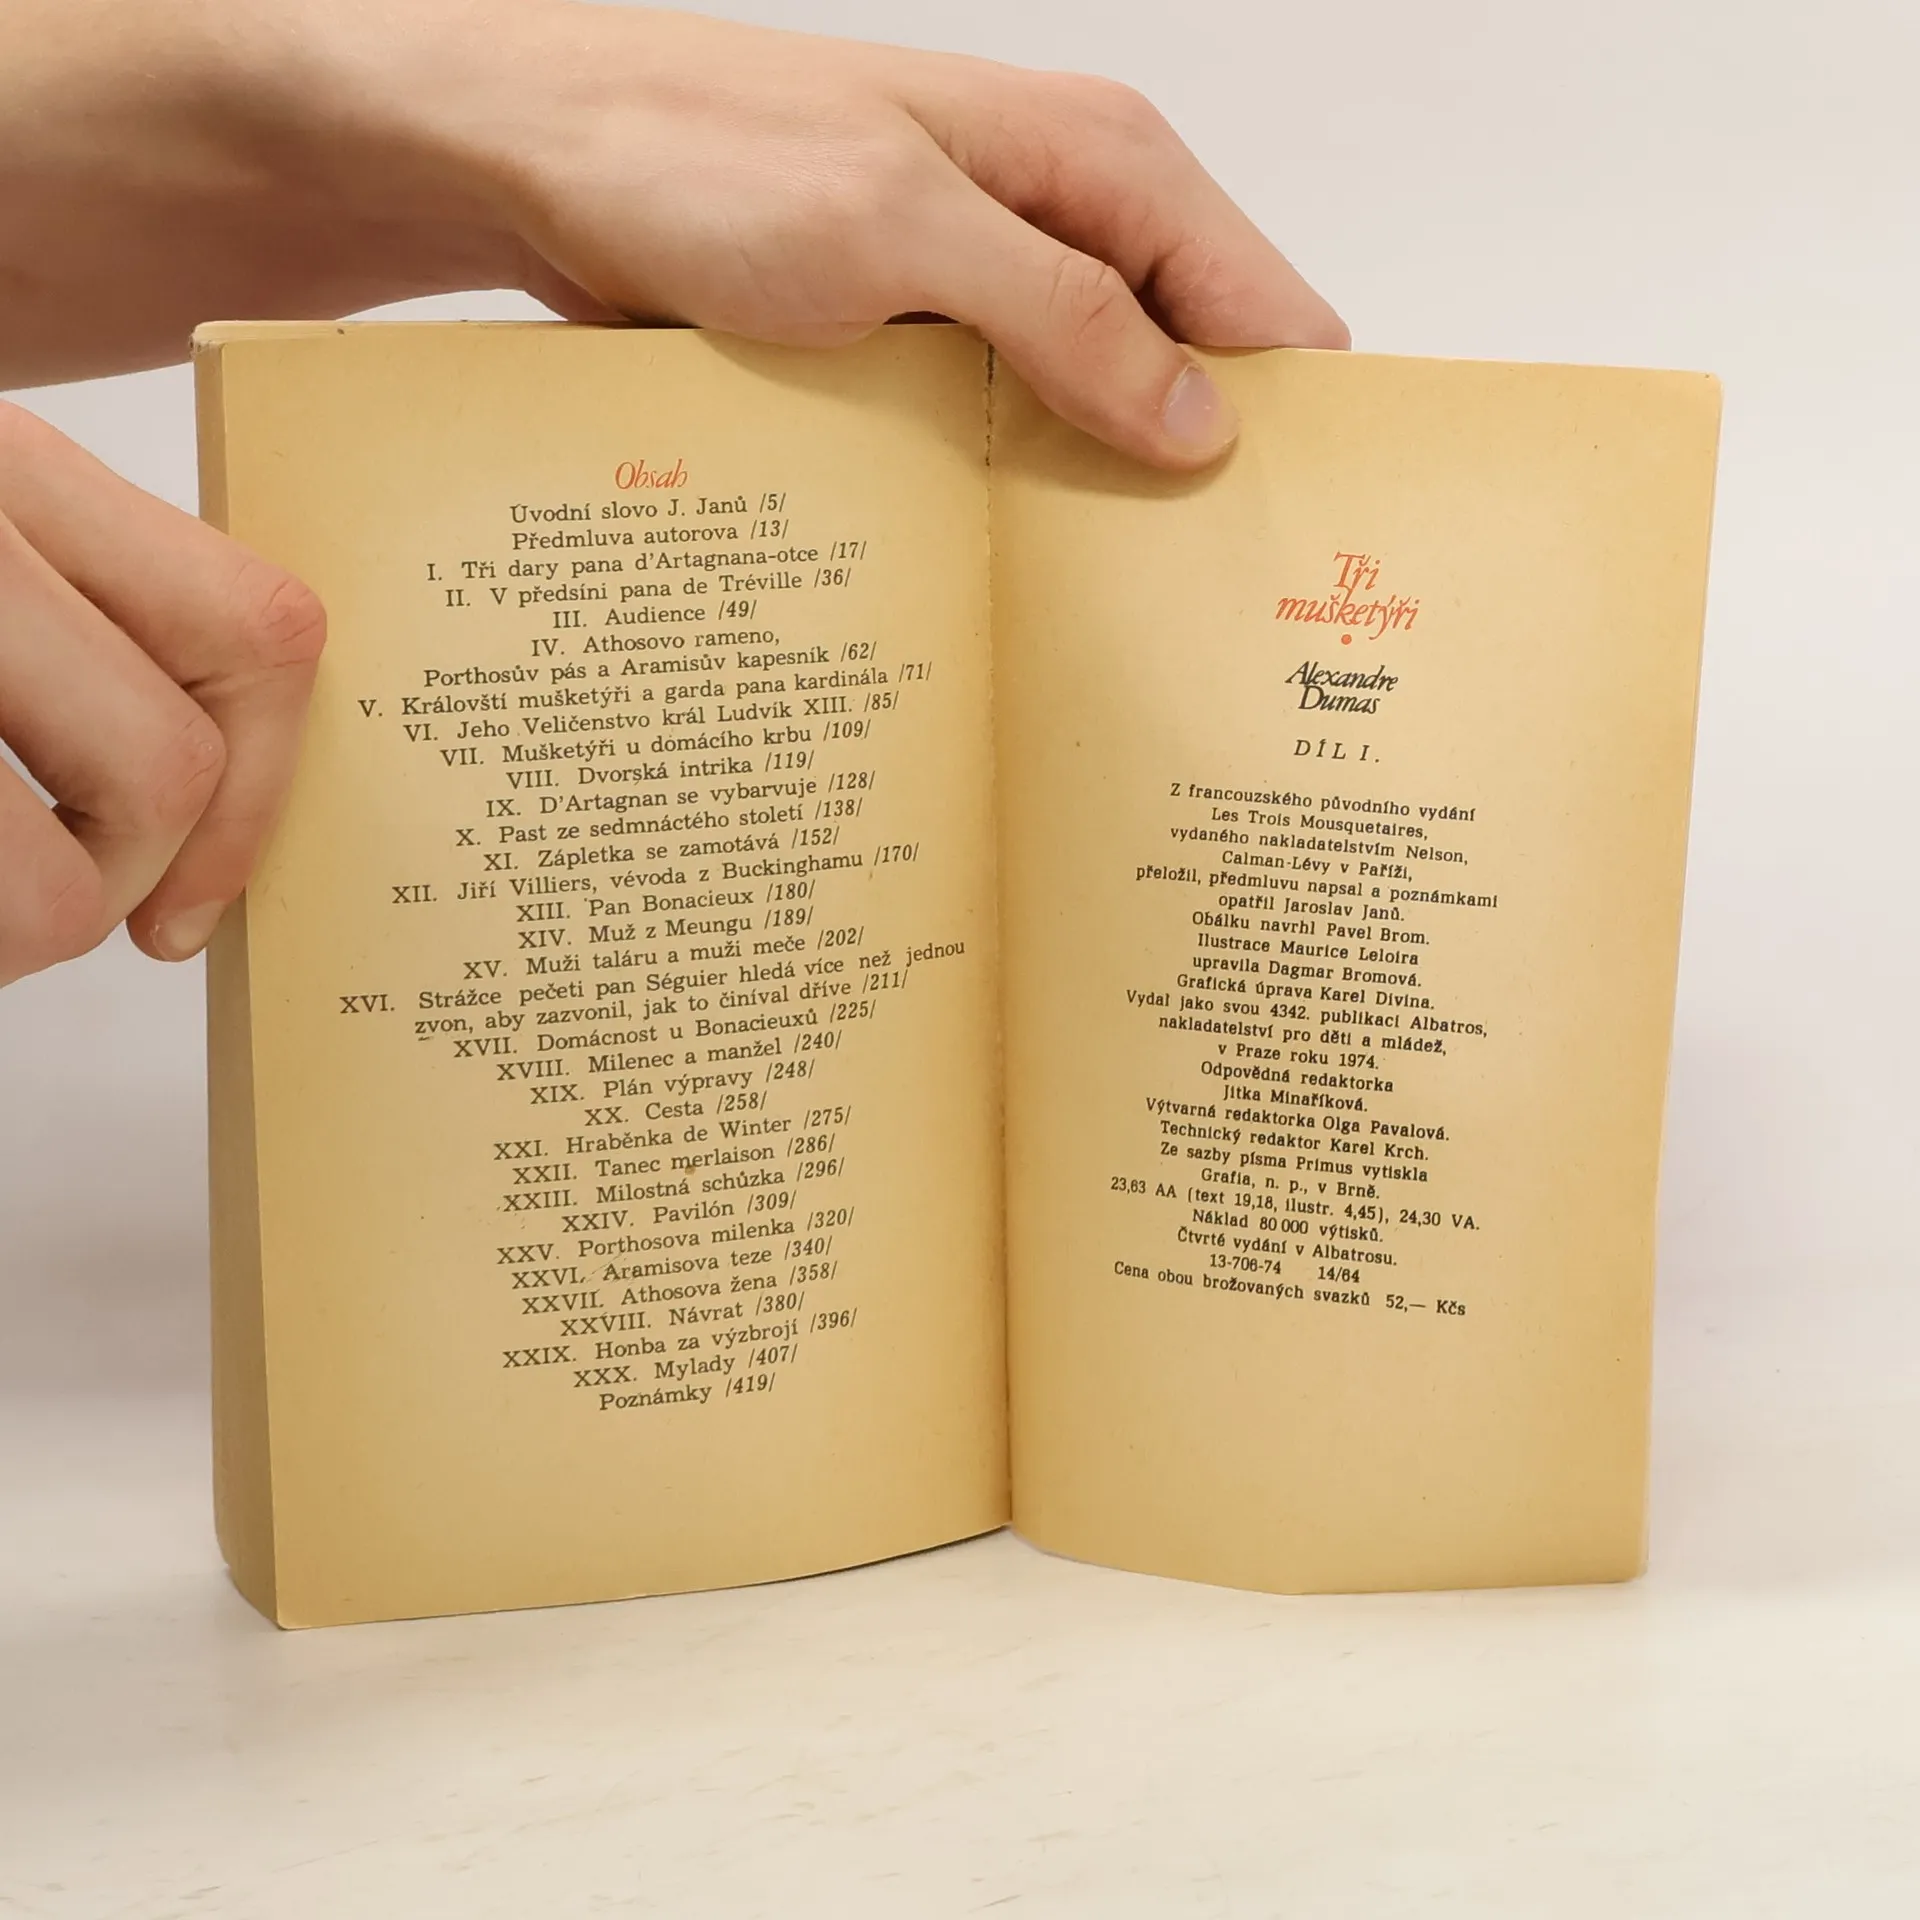 Obsah
Úvodní slovo J. Janů /5/
Předmluva autorova /13/
I. Tři dary pana d'Artagnana-otce /17/
II. V předsíni pana de Tréville /36/
III. Audience /49/
IV. Athosovo rameno,
Porthosův pás a Aramisův kapesník /62/
V. Královští mušketýři a garda pana kardinála /71/
VI. Jeho Veličenstvo král Ludvík XIII. /85/
VII. Mušketýři u domácího krbu /109/
VIII. Dvorská intrika /119/
IX. D'Artagnan se vybarvuje /128/
X. Past ze sedmnáctého století /138/
XI. Zápletka se zamotává /152/
XII. Jiří Villiers, vévoda z Buckinghamu /170/
XIII. Pan Bonacieux /180/
XIV. Muž z Meungu /189/
XV. Muži taláru a muži meče /202/
XVI. Strážce pečeti pan Séguier hledá více než jednou
zvon, aby zazvonil, jak to činíval dříve /211/
XVII. Domácnost u Bonacieuxů /225/
XVIII. Milenec a manžel /240/
XIX. Plán výpravy /248/
XX. Cesta /258/
XXI. Hraběnka de Winter /275/
XXII. Tanec merlaison /286/
XXIII. Milostná schůzka /296/
XXIV. Pavilón /309/
XXV. Porthosova milenka /320/
XXVI. Aramisova teze /340/
XXVII. Athosova žena /358/
XXVIII. Návrat /380/
XXIX. Honba za výzbrojí /396/
XXX. Mylady /407/
Poznámky /419/
Tři
mušketýři
Alexandre
Dumas
DÍL I.
Z francouzského původního vydání
Les Trois Mousquetaires,
vydaného nakladatelstvím Nelson,
Calman-Lévy v Paříži,
přeložil, předmluvu napsal a poznámkami
opatřil Jaroslav Janů.
Obálku navrhl Pavel Brom.
Ilustrace Maurice Leloira
upravila Dagmar Bromová.
Grafická úprava Karel Divina.
Vydal jako svou 4342. publikaci Albatros,
nakladatelství pro děti a mládež,
v Praze roku 1974.
Odpovědná redaktorka
Jitka Minaříková.
Výtvarná redaktorka Olga Pavalová.
Technický redaktor Karel Krch.
Ze sazby písma Primus vytiskla
Grafia, n. p., v Brně.
23,63 AA (text 19,18, ilustr. 4,45), 24,30 VA.
Náklad 80 000 výtisků.
Čtvrté vydání v Albatrosu.
13-706-74 14/64
Cena obou brožovaných svazků 52,— Kčs